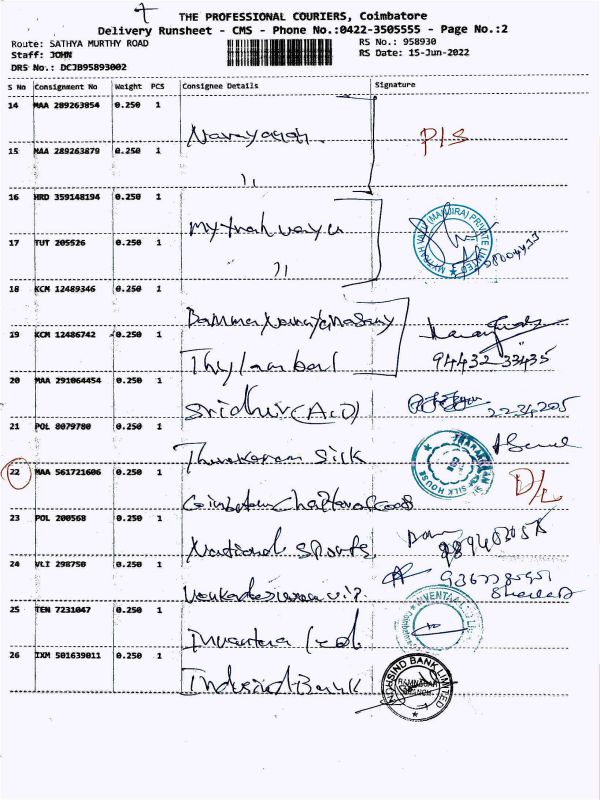 THE PROFESSIONAL COURIERS, Coimbatore
Delivery Runsheet - CMS - Phone No.:0422-3505555 - Page No.:2
Route: SATHYA MURTHY ROAD
RS No.: 958930
Staff: JOHN
RS Date: 15-Jun-2022
DRS No.: DCJB95893002
S No Consignment No Weight PCS Consignee Details Signature
14 MAA 289263854 0.250 1
Narayanan.
P/S
15 MAA 289263879 0.250 1
,,
16 HRD 359148194 0.250 1
Mytrah vayu
MYTRAH VAYU (MANJIRA) PRIVATE LIMITED
17 TUT 205526 0.250 1
,,
18 KCM 12489346 0.250 1
19 KCM 12486742 0.250 1
94432 33435
20 MAA 291064454 0.250 1
Sridhir (A.D)
21 POL 8079780 0.250 1
Silk
SILK HOUSE
22 MAA 561721606 0.250 1
D/L
Coimbatore Chapter of
23 POL 200568 0.250 1
National Sports
24 VLI 298750 0.250 1
25 TEN 7231047 0.250 1
26 IXM 501639011 0.250 1
Indusind Bank
INDUSIND BANK LIMITED